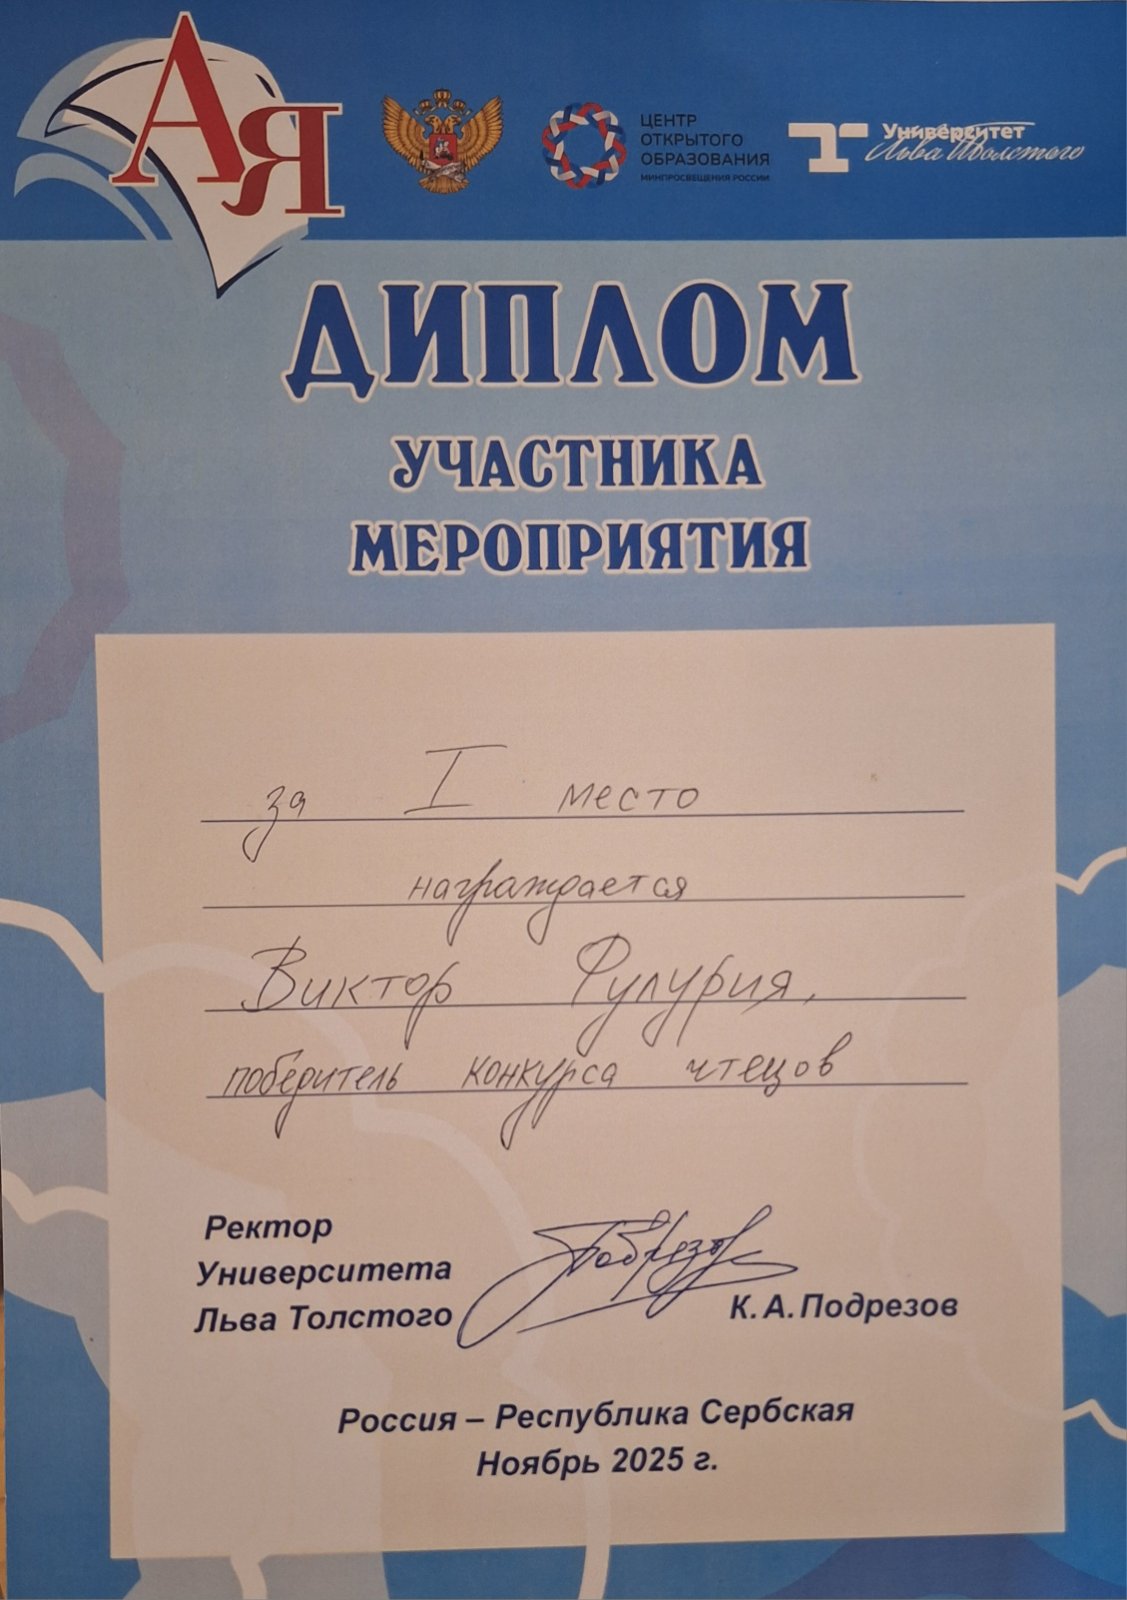 АЯ
ЦЕНТР
ОТКРЫТОГО
ОБРАЗОВАНИЯ
МИНПРОСВЕЩЕНИЯ РОССИИ
Университет
Льва Толстого
ДИПЛОМ
УЧАСТНИКА
МЕРОПРИЯТИЯ
за I место
награждается
Виктор Фулурия,
победитель конкурса чтецов
Ректор
Университета
Льва Толстого
К. А. Подрезов
Россия – Республика Сербская
Ноябрь 2025 г.